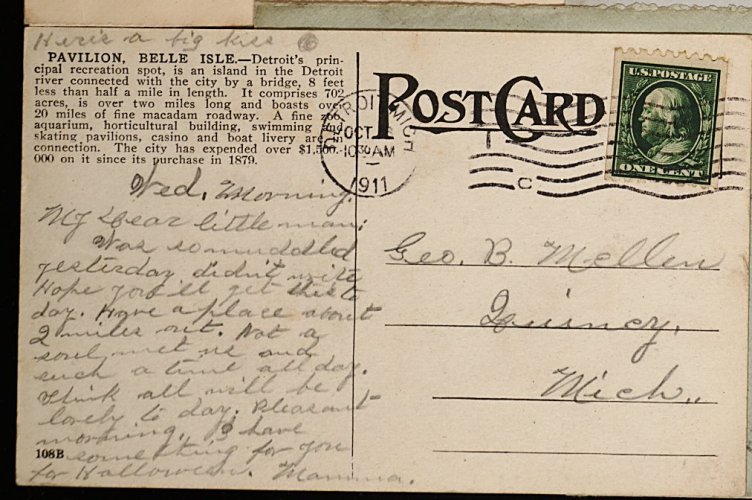 Here's a big kiss
PAVILION, BELLE ISLE.—Detroit's prin-
cipal recreation spot, is an island in the Detroit
river connected with the city by a bridge, 8 feet
less than half a mile in length. It comprises 702
acres, is over two miles long and boasts over
20 miles of fine macadam roadway. A fine
aquarium, horticultural building, swimming
skating pavilions, casino and boat livery are
connection. The city has expended over $1,500,-
000 on it since its purchase in 1879.
Wed. Morning.
My Dear little man:
Was so muddled
yesterday didn't write
Hope you'll get this to
day. Have a place about
2 miles out. Not a
soul met us and
such a time all day.
Think all will be
lovely to day. Pleasant
morning. I have
something for you
for Halloween. Mamma.
108B
POST CARD
DETROIT, MICH
OCT
10 30 AM
1911
C
U.S. POSTAGE
ONE CENT
Geo. B. Mellen
Quincy,
Mich.,